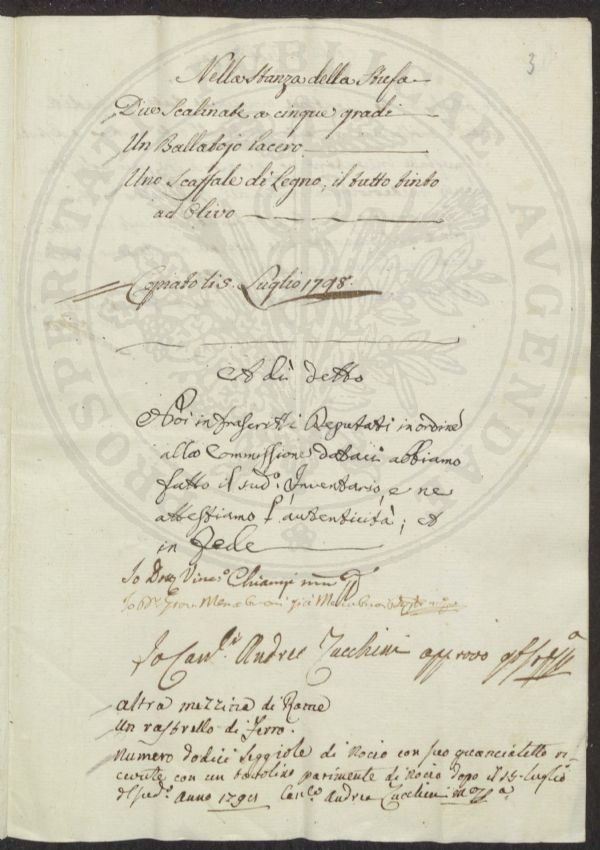 3
Nella Stanza della Stufa
Due Scalinate a cinque gradi
Un Ballatojo lacero
Uno Scaffale di Legno, il tutto tinto
ad Olivo
Copiato li 5. Luglio 1798.
A dì detto
Noi infrascritti Deputati in ordine
alla Commissione dataci abbiamo
fatto il sud.º Inventario, e ne
attestiamo l'autenticità; et
in Fede
Io Vinc.º Chiampi
Io
Io Can.co Andrea Zucchini approvo
altra mezzina di Rame
un rastrello di ferro.
numero dodici seggiole di Nocio con suo guancialetto ri-
cevute con un tavolino parimente di Nocio dopo il 15. luglio
Anno 1798 Can.co Andrea Zucchini
PROSPERITATI PUBLICAE AUGENDAE